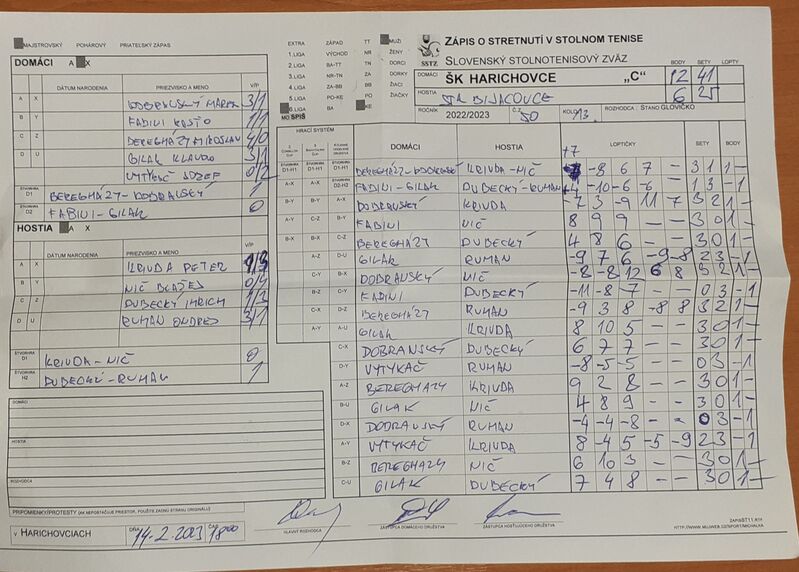 MAJSTROVSKÝ POHÁROVÝ PRIATEĽSKÝ ZÁPAS
DOMÁCI A X
DÁTUM NARODENIA PRIEZVISKO A MENO V/P
A X DOBRANSKÝ MAREK 3/1
B Y FABINI RASŤO 1/1
C Z BEREGHÁZY MIROSLAV 4/0
D U GILAK KLAUDO 3/1
VYTYKAČ JOZEF 0/2
ŠTVORHRA D1 BEREGHÁZY-DOBRANSKÝ 1
ŠTVORHRA D2 FABINI-GILAK 0
HOSTIA A X
DÁTUM NARODENIA PRIEZVISKO A MENO V/P
A X KRIVDA PETER 1/3
B Y NIČ BLAŽEJ 0/4
C Z DUBECKÝ IMRICH 1/3
D U RUMAN ONDREJ 3/1
ŠTVORHRA D1 KRIVDA-NIČ 0
ŠTVORHRA H2 DUBECKÝ-RUMAN 1
DOMÁCI
HOSTIA
ROZHODCA
PRIPOMIENKY/PROTESTY (AK NEPOSTAČUJE PRIESTOR, POUŽITE ZADNÚ STRANU ORIGINÁLU)
V HARICHOVCIACH DŇA 14.2.2023 ČAS 18:00
HLAVNÝ ROZHODCA ZÁSTUPCA DOMÁCEHO DRUŽSTVA ZÁSTUPCA HOSŤUJÚCEHO DRUŽSTVA
EXTRA ZÁPAD TT MUŽI
1. LIGA VÝCHOD NR ŽENY
2. LIGA BA-TT TN DORCI
3. LIGA NR-TN ZA DORKY
4. LIGA ZA-BB BB ŽIACI
5. LIGA PO-KE PO ŽIAČKY
6. LIGA BA KE
MO SPIŠ
SSTZ
ZÁPIS O STRETNUTÍ V STOLNOM TENISE
SLOVENSKÝ STOLNOTENISOVÝ ZVÄZ
BODY SETY LOPTY
DOMÁCI ŠK HARICHOVCE „C" 12 41
HOSTIA BIJACOVCE 6 25
ROČNÍK 2022/2023 Č.Z. 50 KOLO 13. ROZHODCA: STANO GLOVIČKO
HRACÍ SYSTÉM DOMÁCI HOSTIA LOPTIČKY SETY BODY
ŠTVORHRA D1-H1 D1-H1 D1-H1 BEREGHÁZY-DOBRANSKÝ KRIVDA-NIČ +7 -8 6 7 - 3 1 1 -
ŠTVORHRA A-X A-X D2-H2 FABINI-GILAK DUBECKÝ-RUMAN -10 -6 6 - 1 3 - 1
B-Y B-Y A-X DOBRANSKÝ KRIVDA -7 3 -9 11 7 3 2 1 -
A-Y C-Z B-Y FABINI NIČ 8 9 9 - - 3 0 1 -
B-X B-X C-Z BEREGHÁZY DUBECKÝ 4 8 6 - - 3 0 1 -
A-Z D-U GILAK RUMAN -9 7 6 -9 -8 2 3 - 1
C-Y B-X DOBRANSKÝ NIČ -8 -8 12 6 8 3 2 1 -
B-Z C-Y FABINI DUBECKÝ -11 -8 -7 - - 0 3 - 1
C-X D-Z BEREGHÁZY RUMAN -9 3 8 -8 8 3 2 1 -
A-Y A-U GILAK KRIVDA 8 10 5 - - 3 0 1 -
C-X DOBRANSKÝ DUBECKÝ 6 7 7 - - 3 0 1 -
D-Y VYTYKAČ RUMAN -8 -5 -5 - - 0 3 - 1
A-Z BEREGHAZY KRIVDA 9 2 8 - - 3 0 1 -
B-U GILAK NIČ 4 8 9 - - 3 0 1 -
D-X DOBRANSKÝ RUMAN -4 -4 -8 - - 0 3 - 1
A-Y VYTYKAČ KRIVDA 8 -4 5 -5 -9 2 3 - 1
B-Z BEREGHAZY NIČ 6 10 3 - - 3 0 1 -
C-U GILAK DUBECKÝ 7 4 8 - - 3 0 1 -
ZAPISST11.RTF
HTTP://WWW.MUJWEB.CZ/SPORT/MICHALKA